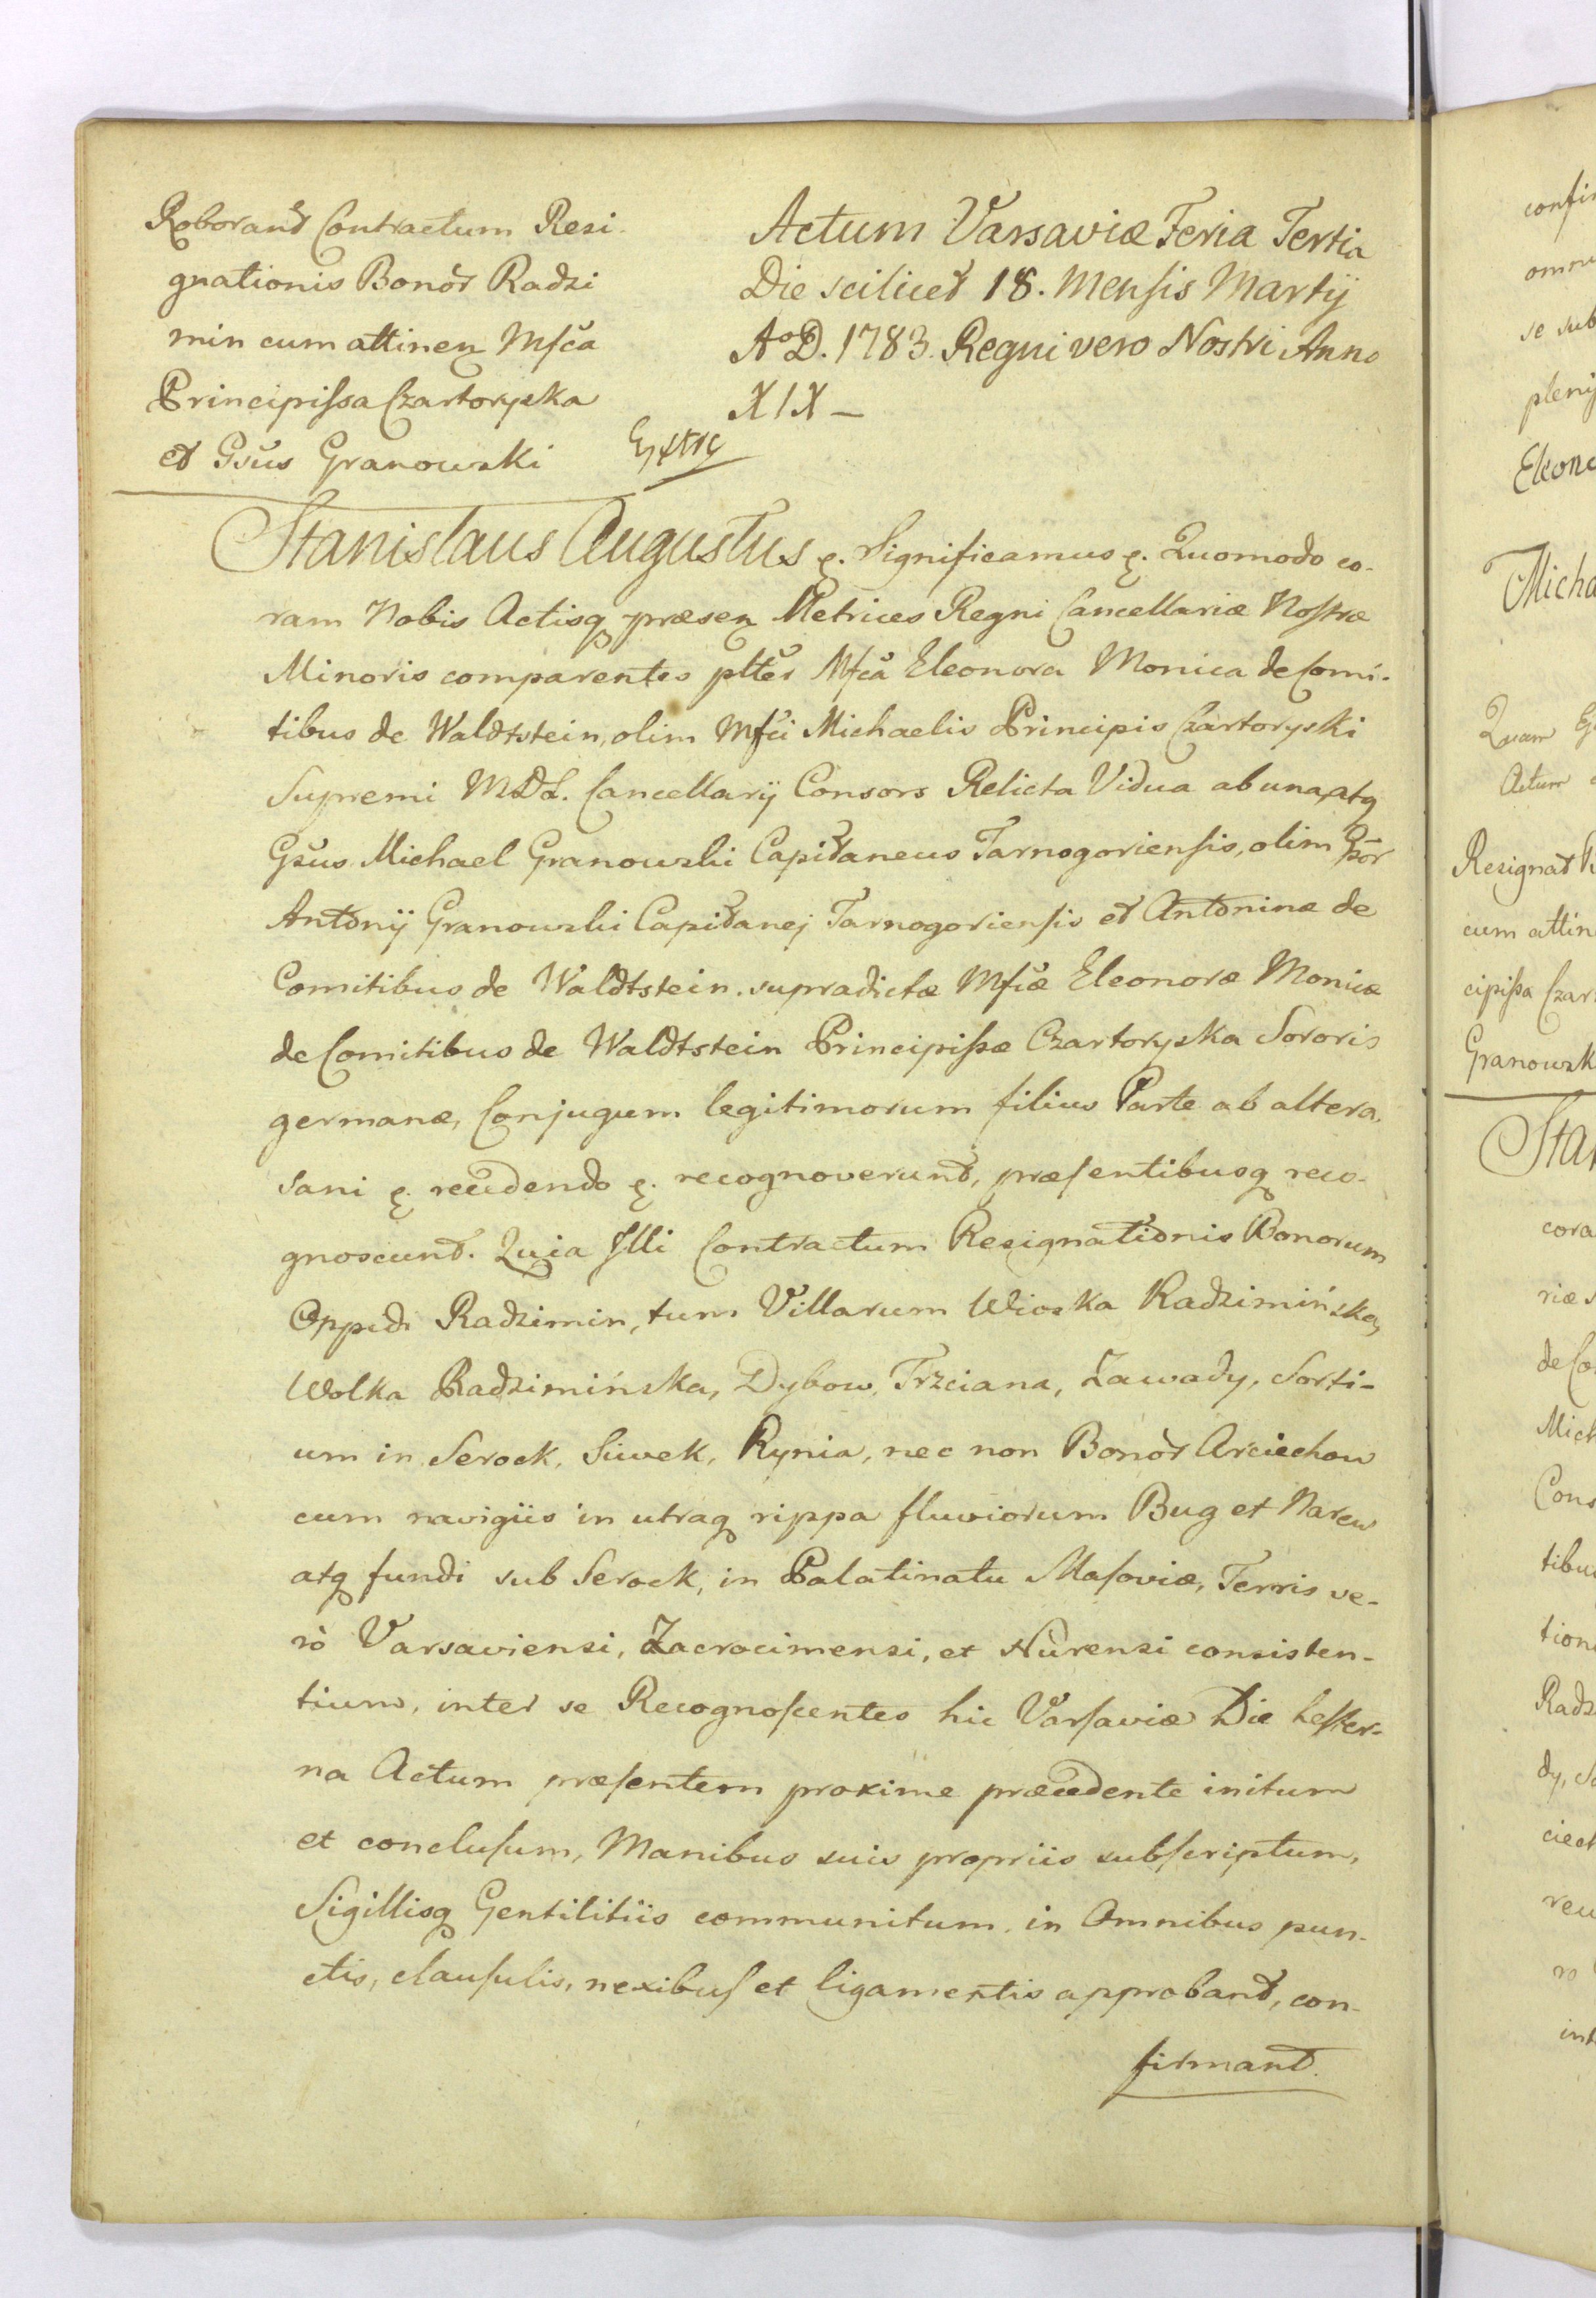 Roborant Contractum Resi-
gnationis Bonor Radzi
min cum attinen Mfca
Principissa Czartoryska
et Gsus Granowski
Extrg
Actum Varsaviæ Feria Tertia
Die scilicet 18. Mensis Martij
A°D. 1783. Regni vero Nostri Anno
XIX –
Stanislaus Augustus ę. Significamus ę. Quomodo co-
ram Nobis Actisq præsen Metrices Regni Cancellariæ Nostræ
Minoris comparentes plter Mfca Eleonora Monica de Comi-
tibus de Waldtstein, olim Mfci Michaelis Principis Czartoryski
Supremi MDL. Cancellarij Consors Relicta Vidua ab una, atq
Gsus Michael Granowski Capitaneus Tarnogoriensis, olim Gsor
Antonij Granowski Capitanej Tarnogoriensis et Antoninæ de
Comitibus de Waldtstein. supradictæ Mfcæ Eleonoræ Monicæ
de Comitibus de Waldtstein Principissæ Czartoryska Sororis
germanæ, Conjugum legitimorum filius Parte ab altera,
sani ę. recedendo ę. recognoverunt, præsentibusq reco-
gnoscunt. Quia Illi Contractum Resignationis Bonorum
Oppidi Radzimin, tum Villarum Wioska Radzimińska,
Wolka Radzimińska, Dybow, Trzciana, Zawady, Sorti-
um in Serock, Siwek, Rynia, nec non Bonor Arciechow
cum navigiis in utraq rippa fluviorum Bug et Narew
atq fundi sub Serock, in Palatinatu Masoviæ, Terris ve-
rò Varsaviensi, Zacrocimensi, et Nurensi consisten-
tium, inter se Recognoscentes hic Varsaviæ Die hester-
na Actum præsentem proxime præcedente initum
et conclusum, Manibus suis propriis subscriptum,
Sigillisq Gentilitiis communitum, in Omnibus pun-
ctis, clausulis, nexibus et ligamentis approbant, con-
firmant.
confir
omni
se sub
plenij
Eleono
Micha
Quam
Actum
Resignat
cum attin
cipissa Czar
Granowsk
Stan
cora
riæ
de Co
Mich
Cons
tibus
tion
Radz
dy, So
ciech
rew
ro
int